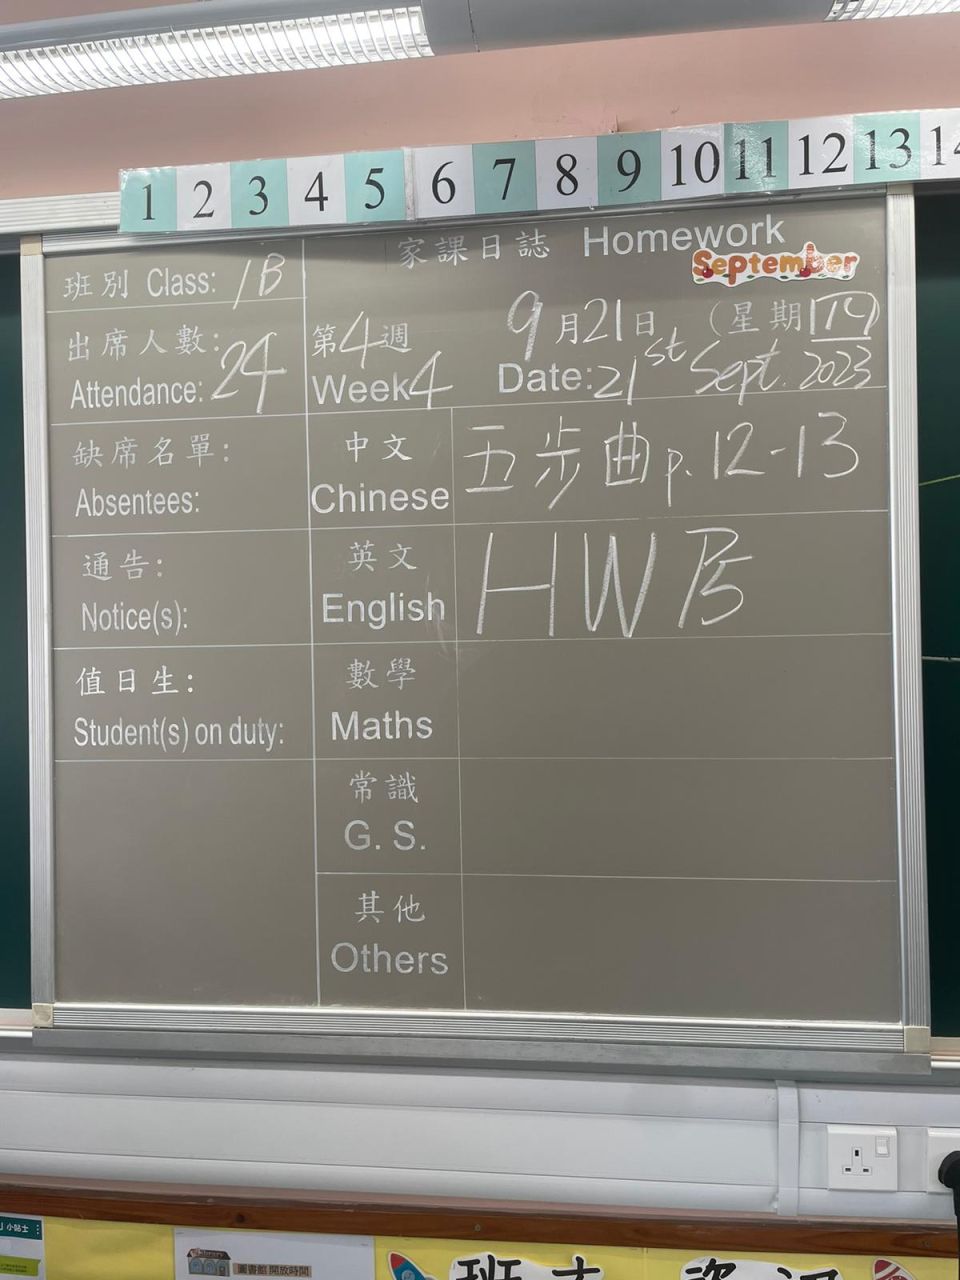 1 2 3 4 5 6 7 8 9 10 11 12 13 14
家課日誌 Homework
September
班別 Class: 1B
出席人數: 24
Attendance:
第4週
Week 4
9月21日 (星期四)
Date: 21st Sept. 2023
缺席名單:
Absentees:
中文
Chinese
五步曲 p.12-13
通告:
Notice(s):
英文
English
HW
值日生:
Student(s) on duty:
數學
Maths
常識
G. S.
其他
Others
小貼士
Library
圖書館開放時間